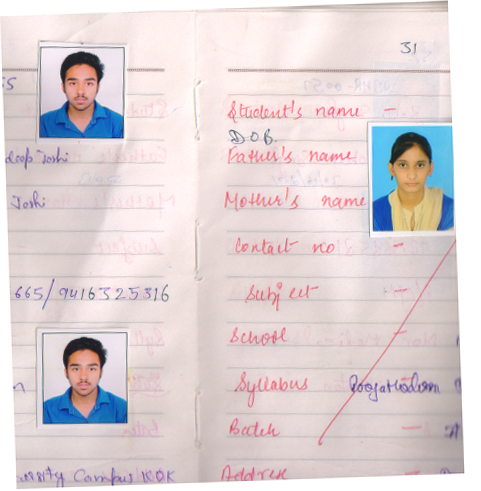 31
5
deep Joshi
Joshi
665/9416325316
n
ersity Campus KUK
Student's name -
D.O.B.
Father's name
Mother's name
Contact no -
Subject
School -
Syllabus
Batch -
Address -